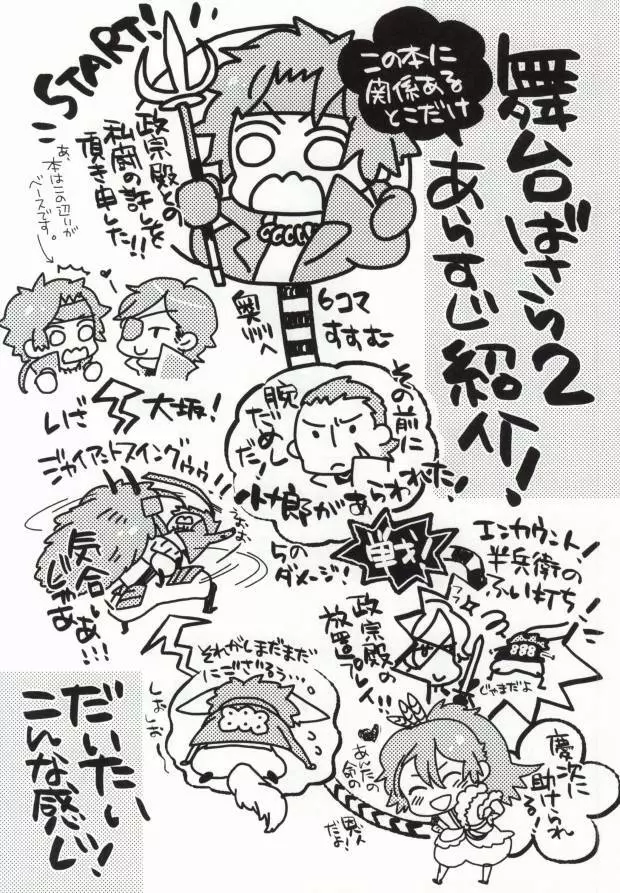 舞台ばさら2
あらすじ紹介!
この本に
関係ある
とこだけ
START!
政宗殿との
私闘の許しを
頂き申した!!
あ、本はこの辺りが
ベースです。
6コマ
すすむ
奥州へ
その前に
腕
だめし
だ!
小十郎があらわれた!
いざ
大坂!
ジャイアントスイングゥゥ!!
気合いじゃあ
あ!!!
5の
ダメージ!
戦!
エンカウント!
半兵衛の
ふい打ち!
政宗殿の
放置プレイ!!
じゃまだよ
それがしまだまだ
にござるぅ…
しおしお
慶次に
助けられ
る!
あんたの
気の
だいたい
こんな感じ!